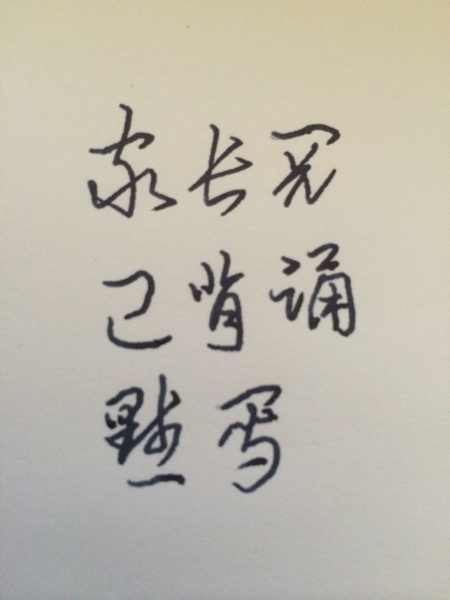 家长阅
已背诵
默写